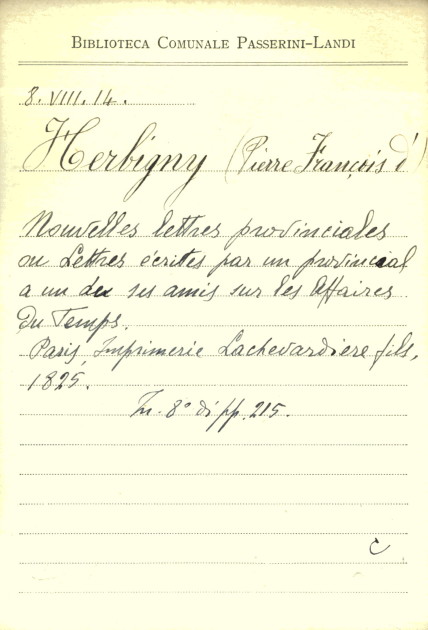 BIBLIOTECA COMUNALE PASSERINI-LANDI
8. VIII. 14.
Herbigny (Pierre François d')
Nouvelles lettres provinciales
ou Lettres écrites par un provincial
a un de ses amis sur les Affaires
du Temps.
Paris, Imprimerie Lachevardiere fils,
1825.
In. 8° di pp. 215.
C